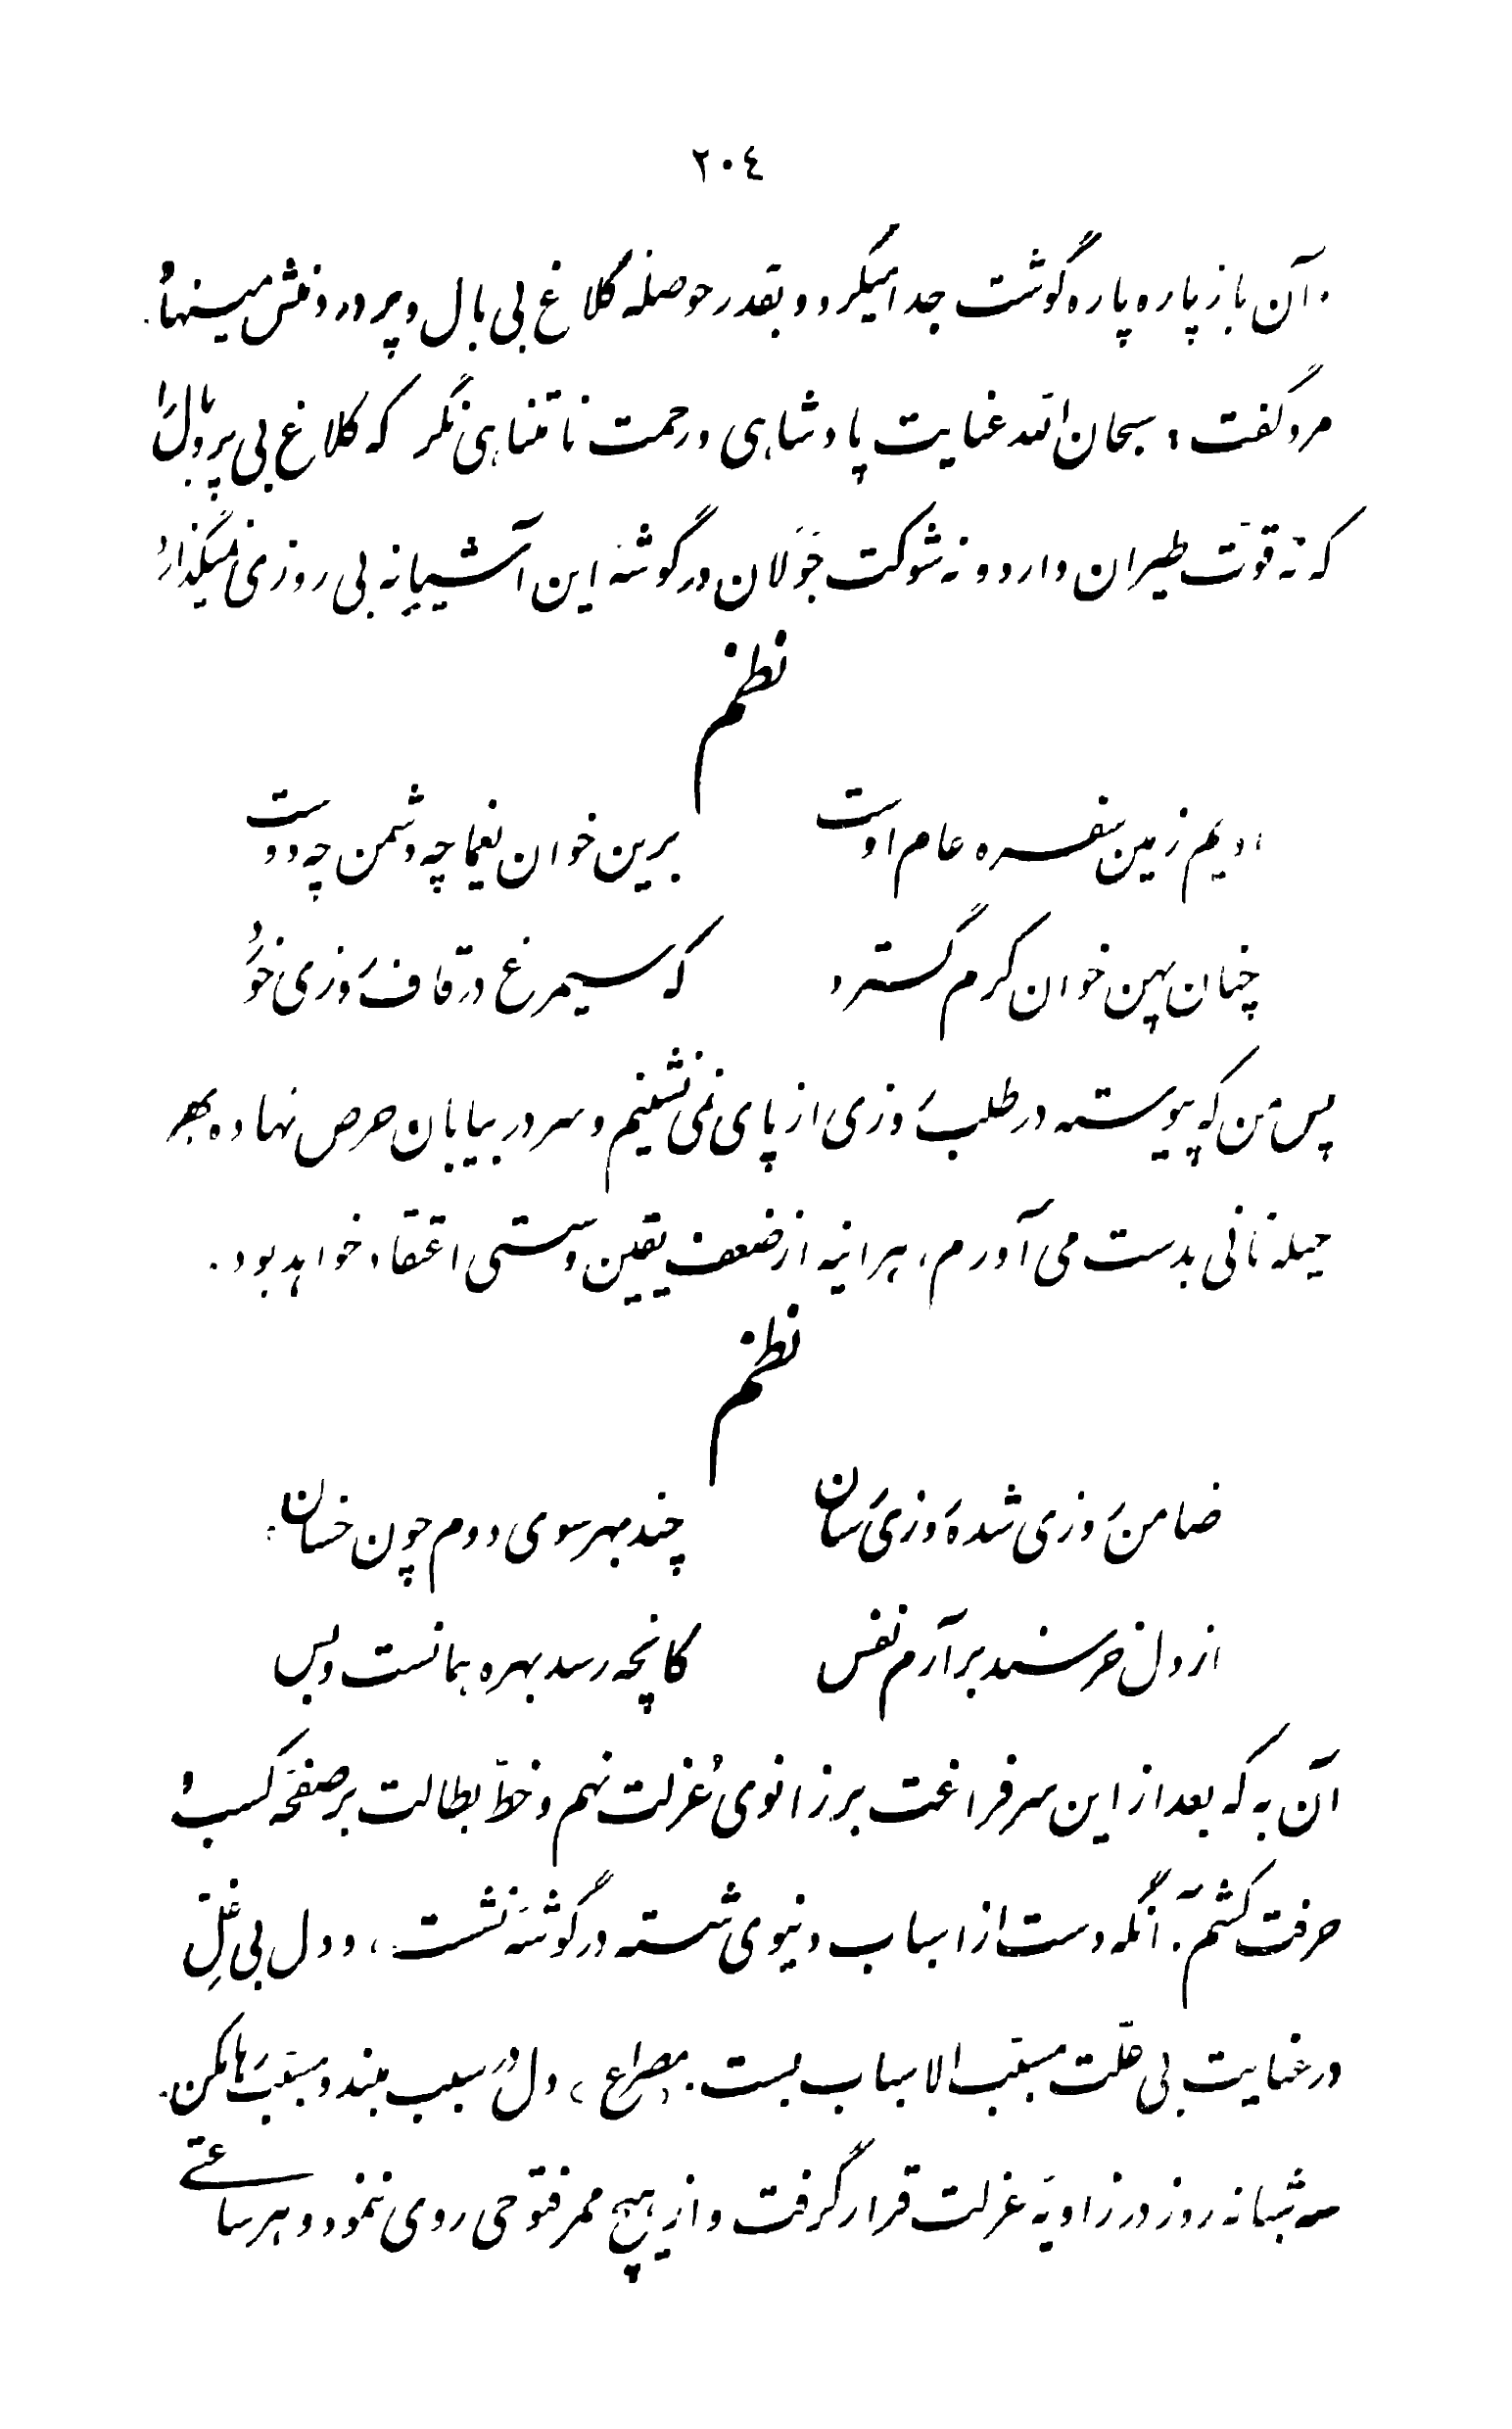 ٢٠٤
و آن باز پاره پاره گوشت جدا میکرد و بقدر حوصلهٔ کلاغ بی بال و پر در دهنش مینهاد.
مرد گفت: سبحان الله عنایت پادشاهی و رحمت نامتناهی نگر که کلاغ بی پر و بال را
که نه قوّت طیران دارد و نه شوکت جَوَلان در گوشهٔ این آشیانه بی روزی نمیگذارد
نظم
ادیم زمین سفره عام اوست برین خوان یغما چه دشمن چه دوست
چنان پهن خوان کرم گسترد که سیمرغ در قاف روزی خورد
پس من که پیوسته در طلب روزی از پای نمی نشینم و سر در بیابان حرص نهاده بهر
حیله نانی بدست می آورم، هرآینه از ضعف یقین و سستی اعتقاد خواهد بود.
نظم
ضامن روزی شده روزی رسان چند بهر سوی دوم چون خسان
از دل خرسند برآرم نفس کانچه رسد بهره همانست و بس
آن به که بعد از این سر فراغت بر زانوی عُزلت نهم و خطّ بطالت بر صفحهٔ کسب و
حرفت کشم. آنگه دست از اسباب دنیوی شسته در گوشهٔ نشست، و دل بی غلّ
در عنایت بی علّت مسبّب الاسباب بست. مصراع، دل در سبب مبند و مسبّب رها مکن.
سه شبانه روز در زاویهٔ عزلت قرار گرفت و از هیچ ممر فتوحی روی ننمود و هر ساعتے